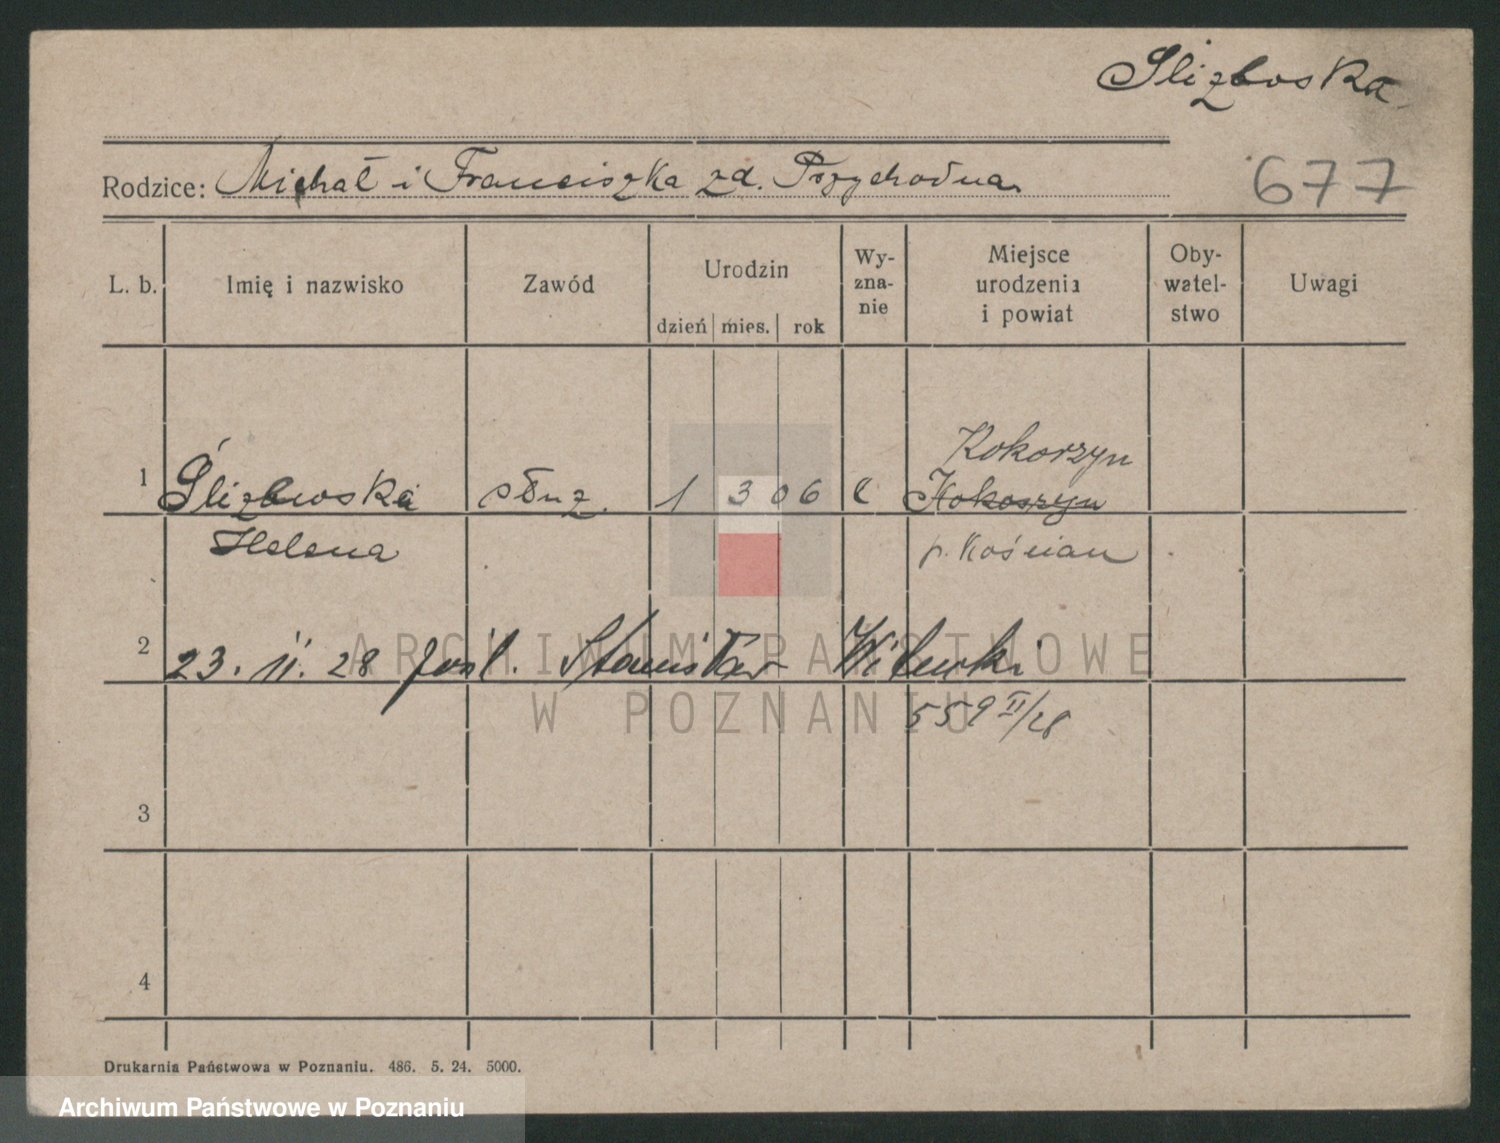 Ślizewska
Rodzice: Michał i Franciszka zd. Przychodna
677
L. b. Imię i nazwisko Zawód Urodzin Wy-zna-nie Miejsce urodzenia i powiat Oby-watel-stwo Uwagi
dzień mies. rok
Kokorzyn
1 Ślizewska służ. 1 3 06 c Kokoszyn
Helena p. Kościan
2 23. 11. 28 Stanisław
ARCHIWUM PAŃSTWOWE
W POZNANIU
559 II/28
3
4
Drukarnia Państwowa w Poznaniu. 486. 5. 24. 5000.
Archiwum Państwowe w Poznaniu